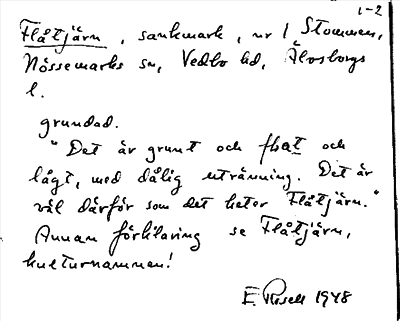 1-2
Flåtjärn, sankmark, nr 1 Stommen,
Nössemarks sn, Vedbo hd, Älvsborgs
l.
grundad.
"Det är grunt och flat och
lågt, med dålig utränning. Det är
väl därför som det heter Flåtjärn."
Annan förklaring se Flåtjärn,
kulturnamnen!
E. Rosell 1948